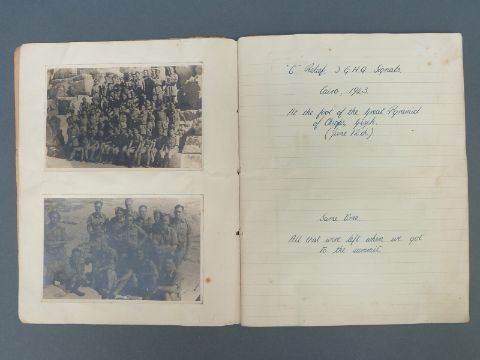 "C" Relief, 3 G.H.Q. Signals.
Cairo, 1943.
At the foot of the Great Pyramid
of Cheops, Gizeh.
(June 12th)
Same Time.
All that were left when we got
to the summit.